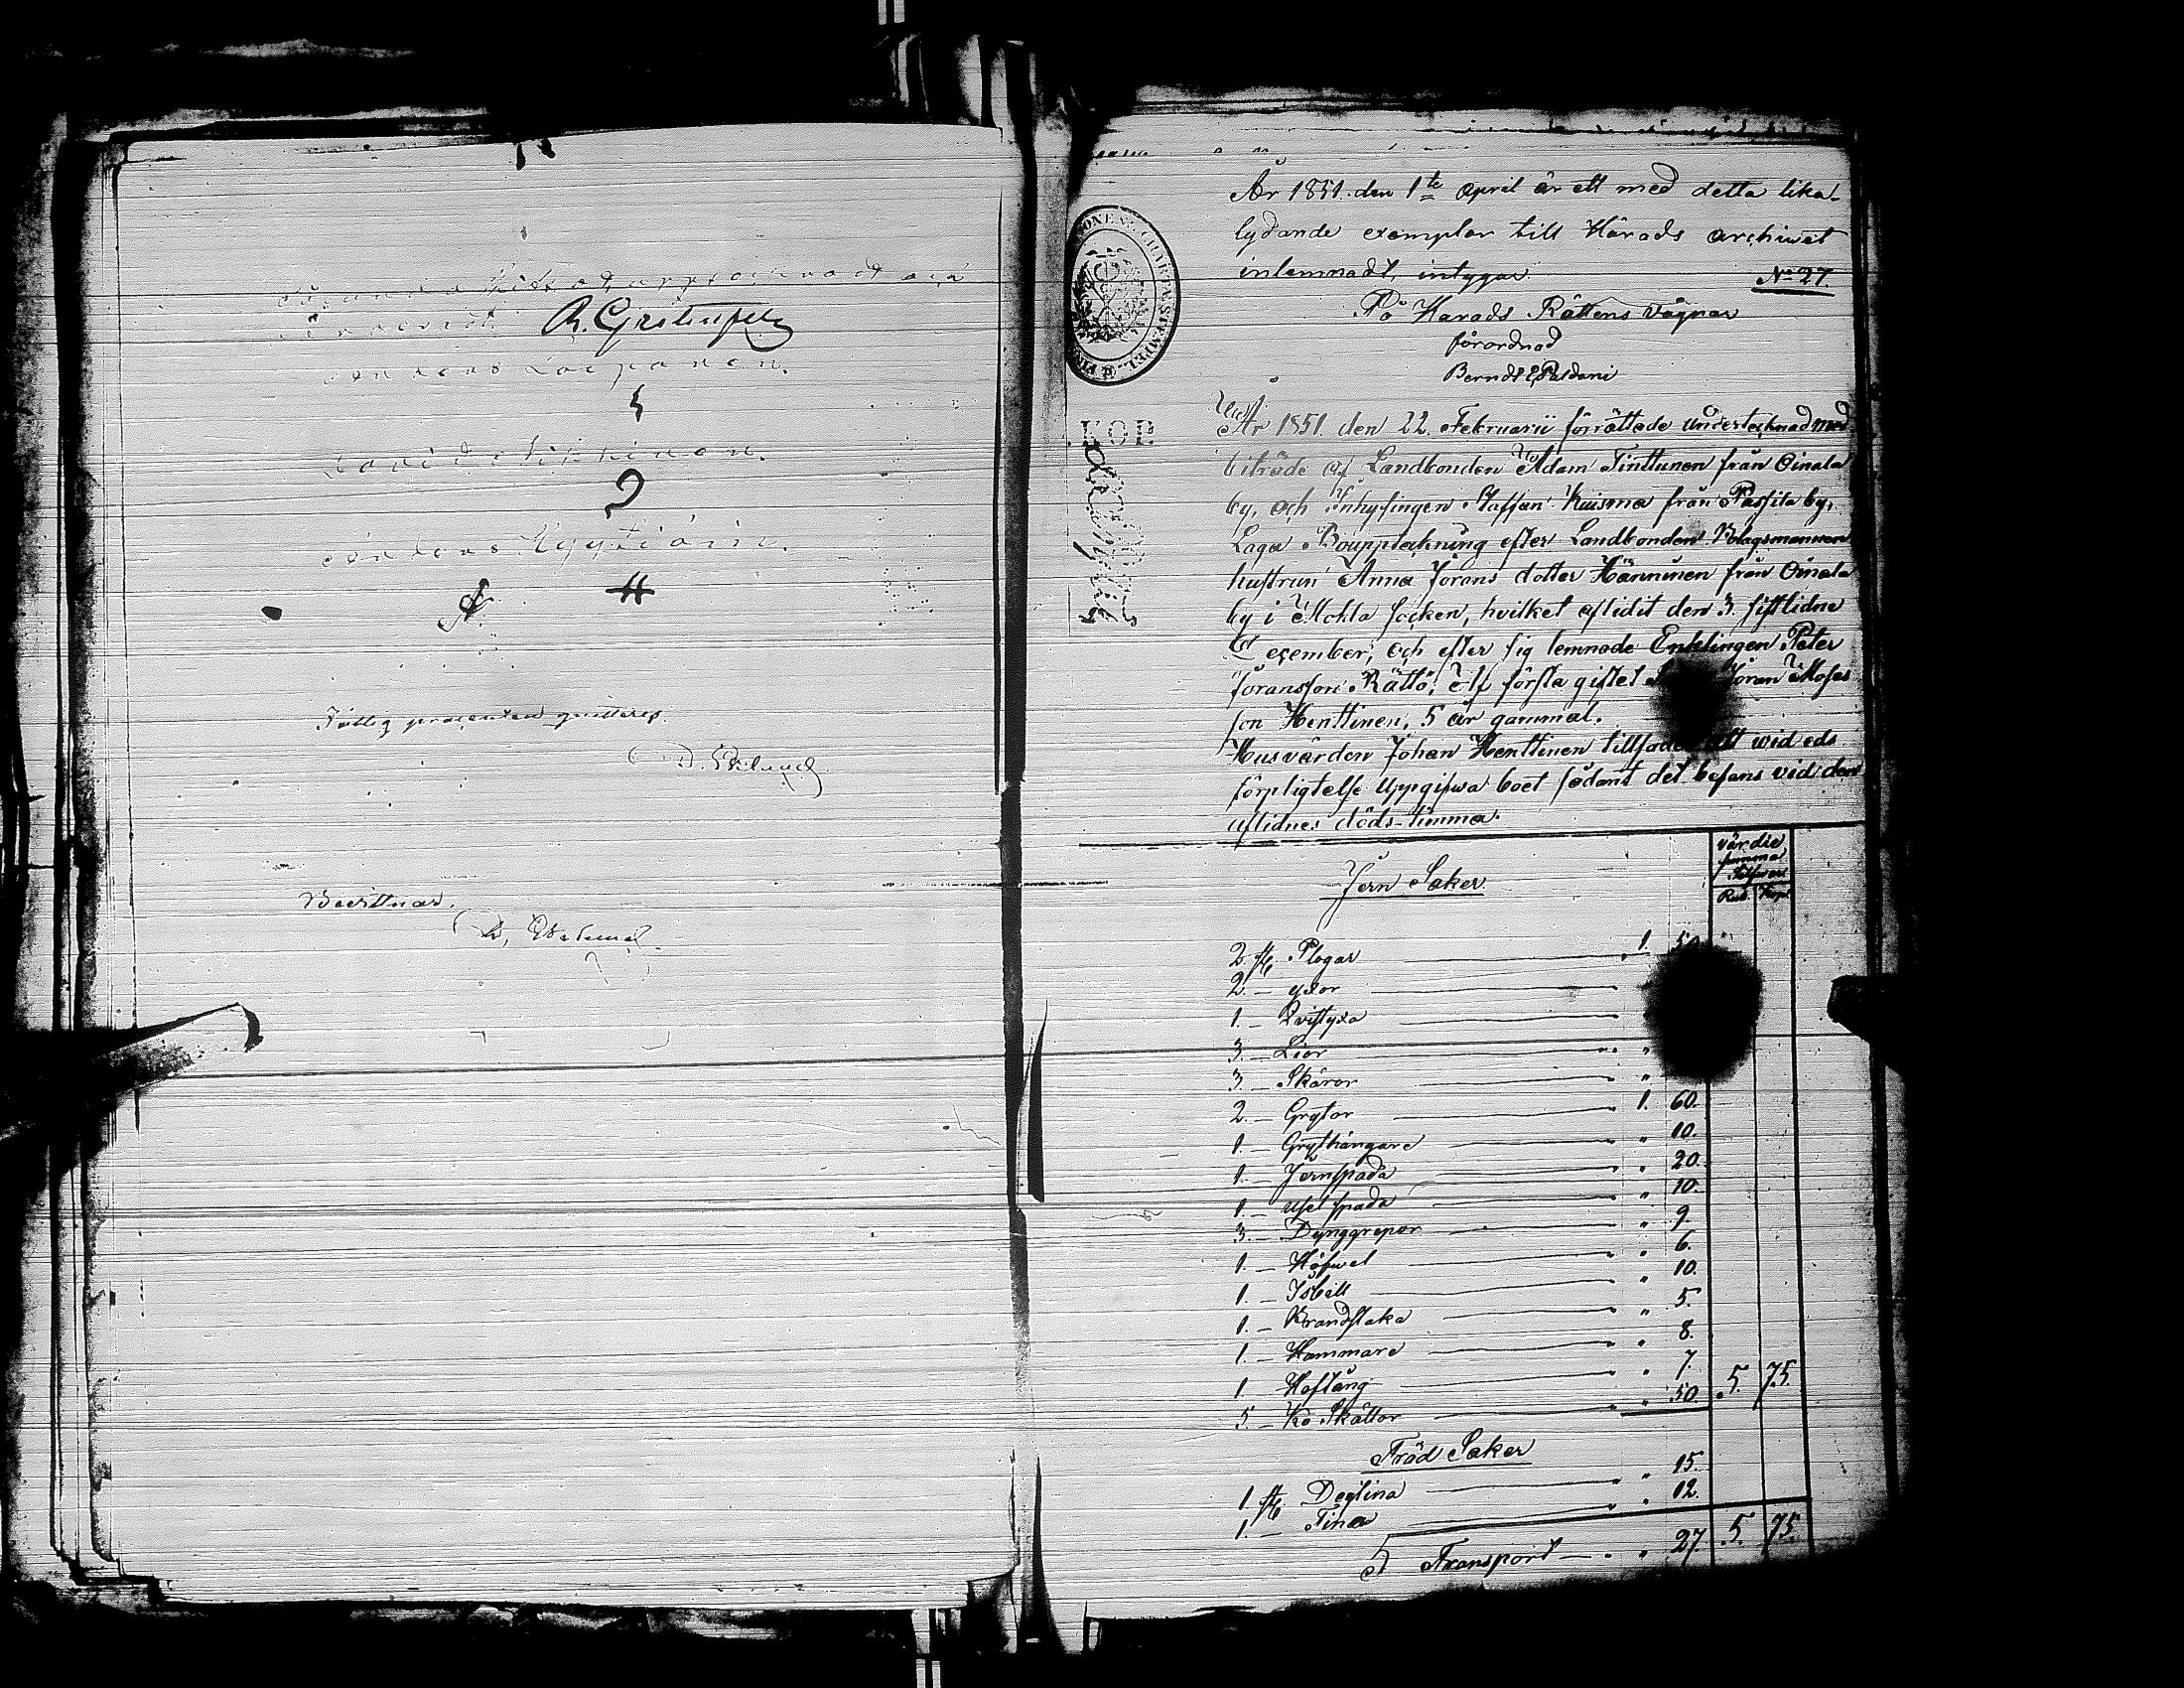 R. Grotenfelt
Andreas Loiponen.
Fattig procenten quitteras.
D. Eklund
Bevittnar.
D. Eklund
År 1851. den 1te April är ett med detta lika-
lydande exemplar till Härads archivet
inlemnadt, intygar. No 27.
På Härads Rättens Vägnar
förordnad
KOP.
År 1851. den 22. Februarii förrättade undertecknad med
biträde af Landbonden Adam Tinttunen från Oinala
by, och Inhysingen Staffan Kuisma från Passila by,
Laga Bouppteckning efter Landbonden Bolagsmannen
hustrun Anna Jörans dotter Hänninen från Oinala
by i Mohla socken, hvilket aflidit den 3. sistlidne
December, och efter sig lemnade Enklingen Peter
Joransson Rättö, Af första giftet Jöran Moses
son Henttinen, 5 år gammal.
Husvärden Johan Henttinen tillsade att wid eds
förpligtelse uppgifwa boet sådant det befans vid den
aflidnes döds-timma.
värdie
summa
Silfver
Rub. Kop.
Jern Saker
2 st. Plogar 1.
2. — yxor
1. — Qvistyxa
3. — Liar "
3. — Skäror "
2. — Grytor 1. 60.
1. — Grythängare " 10.
1. — Jernspada " 20.
1. — Ugnspada " 10.
3. — Dynggrepor " 9.
1. — Höfwel " 6.
1. — Isbill " 10.
1. — Brandstaka " 5.
1. — Hammare " 8.
1. — Hoftång " 7.
5. — Ko Skällor " 50. 5. 75.
Träd Saker
1. st. Degtina " 15.
1. — Tina " 12.
Transport — " 27. 5. 75.